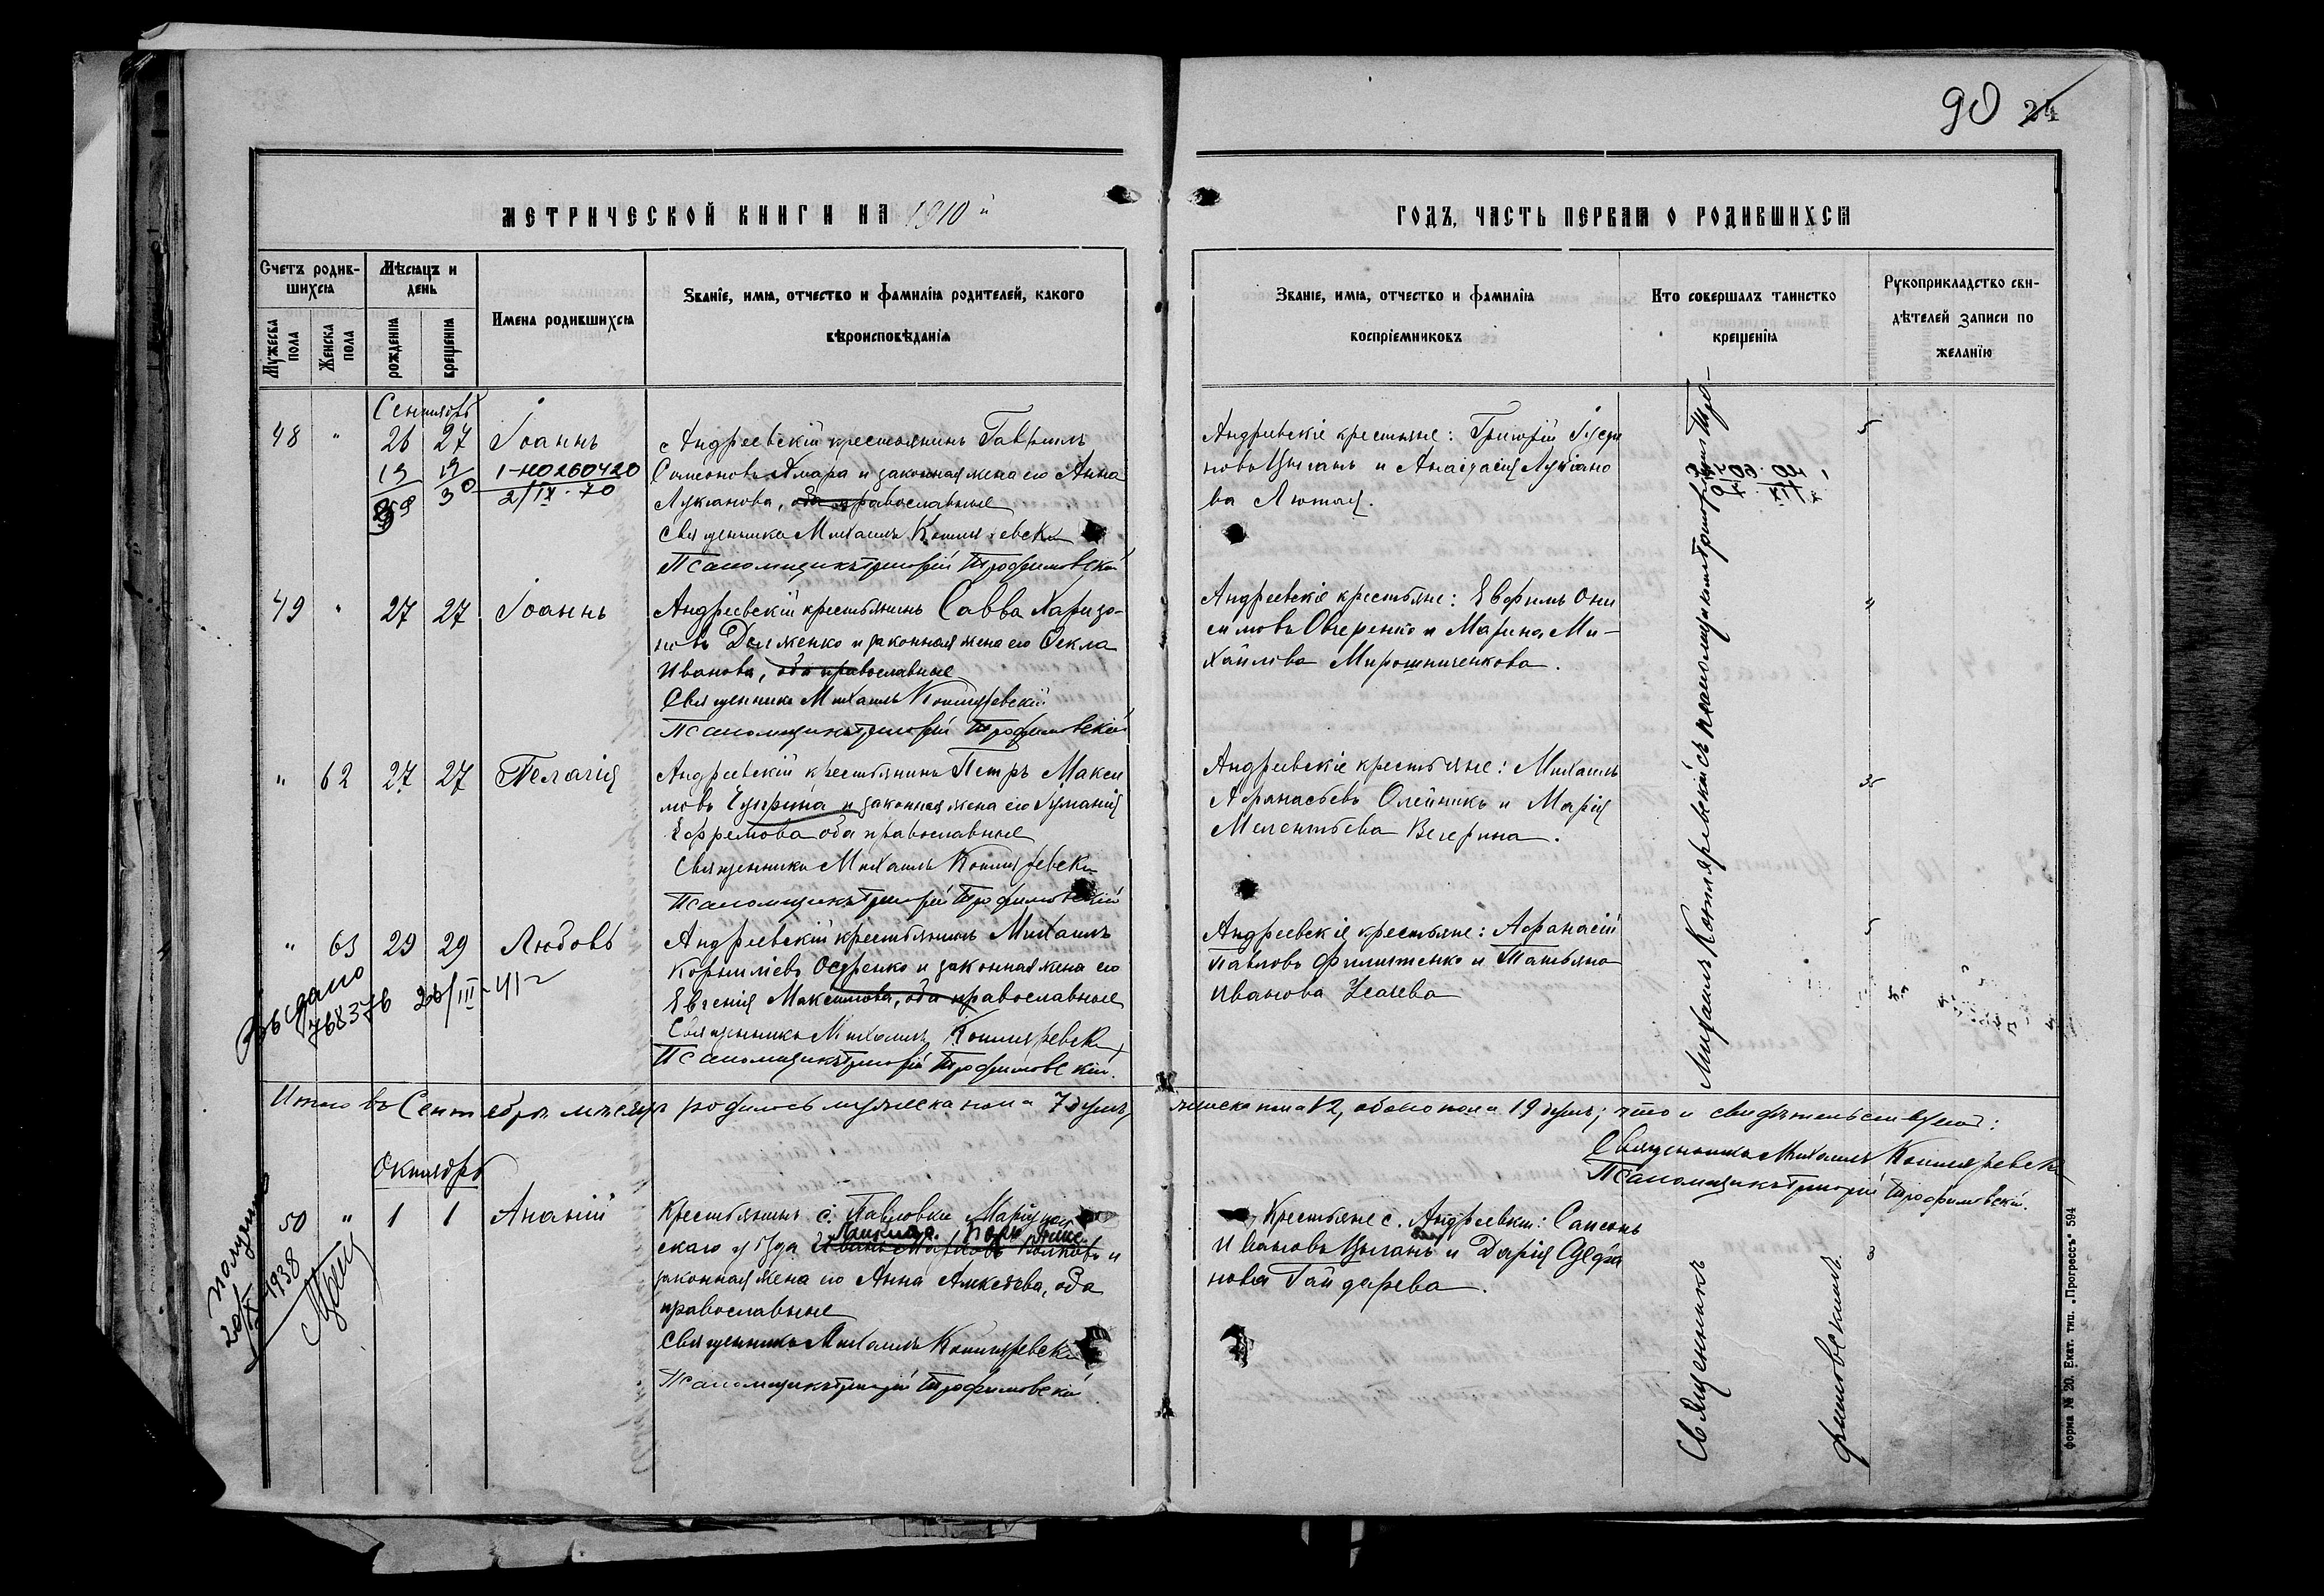 90 24
МЕТРИЧЕСКОЙ КНИГИ НА 1910 й
ГОДЪ, ЧАСТЬ ПЕРВАЯ О РОДИВШИХСЯ
Счетъ родив-
шихся
Мужеска пола
Женска пола
Мѣсяцъ и
день
рожденія
крещенія
Имена родившихся
Званіе, имя, отчество и фамилія родителей, какого
вѣроисповѣданія
Званіе, имя, отчество и фамилія
воспріемниковъ
Кто совершалъ таинство
крещенія
Рукоприкладство сви-
дѣтелей записи по
желанію
Сентябрь
48 " 26 27 Іоаннъ
1-НО260420
2/IX-70
Андреевскій крестьянинъ Гавріилъ
Симеоновъ Хмара и законная жена его Анна
Лукіанова, оба православные
Священникъ Михаилъ Котляревскій
Псаломщикъ Григорій Трофимовскій
Андреевскіе крестьяне: Григорій
новъ Цыганъ и Анастасія Лукіано
ва Лютая.
49 " 27 27 Іоаннъ
Андреевскій крестьянинъ Савва Харито-
новъ Долженко и законная жена его Ѳекла
Иванова, оба православные
Священникъ Михаилъ Котляревскій
Псаломщикъ Григорій Трофимовскій
Андреевскіе крестьяне: Евфимъ Они
симовъ Овчеренко и Марина Ми-
хайлова Мирошниченкова.
" 62 27 27 Пелагія
Андреевскій крестьянинъ Петръ Макси
мовъ и законная жена его
Ефремова оба православные
Священникъ Михаилъ Котляревскій
Псаломщикъ Григорій Трофимовскій
Андреевскіе крестьяне: Михаилъ
Афанасьевъ Олейникъ и Марія
Мелентьева Вечерина.
" 63 29 29 Любовь
768376 /III-41 г
Андреевскій крестьянинъ Михаилъ
Корниліевъ и законная жена его
Евгенія Максимова, оба православные
Священникъ Михаилъ Котляревскій
Псаломщикъ Григорій Трофимовскій.
Андреевскіе крестьяне: Афанасій
Павловъ Филипенко и Татьяна
Иванова
Итого въ Сентябрѣ мѣсяцѣ родилось мужеска пола 7 душъ, женска пола 12, обоего пола 19 душъ; что и свидѣтельствуютъ:
Священникъ Михаилъ Котляревскій
Псаломщикъ Григорій Трофимовскій.
Октябрь
50 " 1 1 Ананій
получено
1938
Крестьянинъ с. Павловки Маріуполь
скаго уѣзда Иванъ Марковъ и
законная жена его Анна Алексѣева, оба
православные
Священникъ Михаилъ Котляревскій
Псаломщикъ Григорій Трофимовскій
Крестьяне с. Андреевки: Сампсонъ
Ивановъ Цыганъ и Дарія Стефа
нова Гайдарева.
Священникъ Михаилъ Котляревскій съ псаломщикомъ Григоріемъ Тро-
фимовскимъ.
форма № 20. Екат. тип. „Прогрессъ" 594